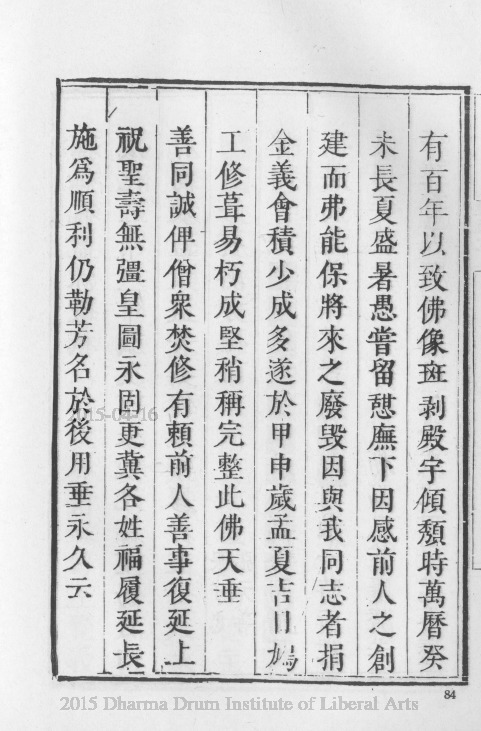 有百年以致佛像斑剥殿宇傾頽時萬曆癸
未長夏盛暑愚嘗留憩廡下因感前人之創
建而弗能保將來之廢毀因與我同志者捐
金義會積少成多遂於甲申歲孟夏吉日鳩
工修葺易朽成堅稍稱完整此佛天垂
善同誠俾僧衆焚修有頼前人善事復延上
祝聖壽無彊皇圖永固更冀各姓福履延長
施爲順利仍勒芳名於後用垂永久云
84
2015-04-16
2015 Dharma Drum Institute of Liberal Arts